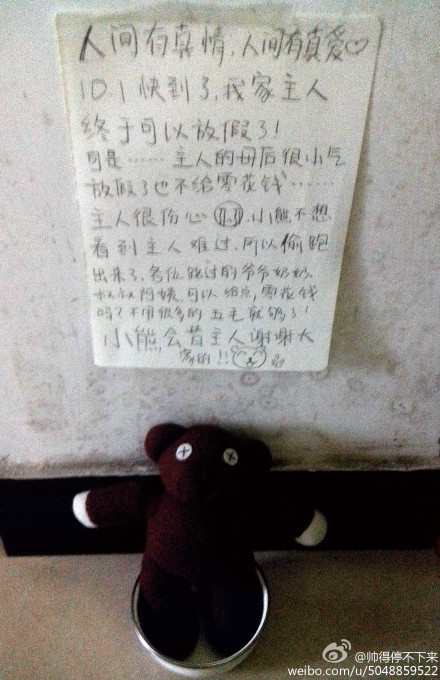 人间有真情,人间有真爱♡
10.1快到了,我家主人
终于可以放假了!
可是……主人的母后很小气
放假了也不给零花钱……
主人很伤心,小熊不想
看到主人难过,所以偷跑
出来了,各位路过的爷爷奶奶
叔叔阿姨,可以给点,零花钱
吗?不用很多的五毛就够了!
小熊会替主人谢谢大
家的!!
@帅得停不下来
weibo.com/u/5048859522